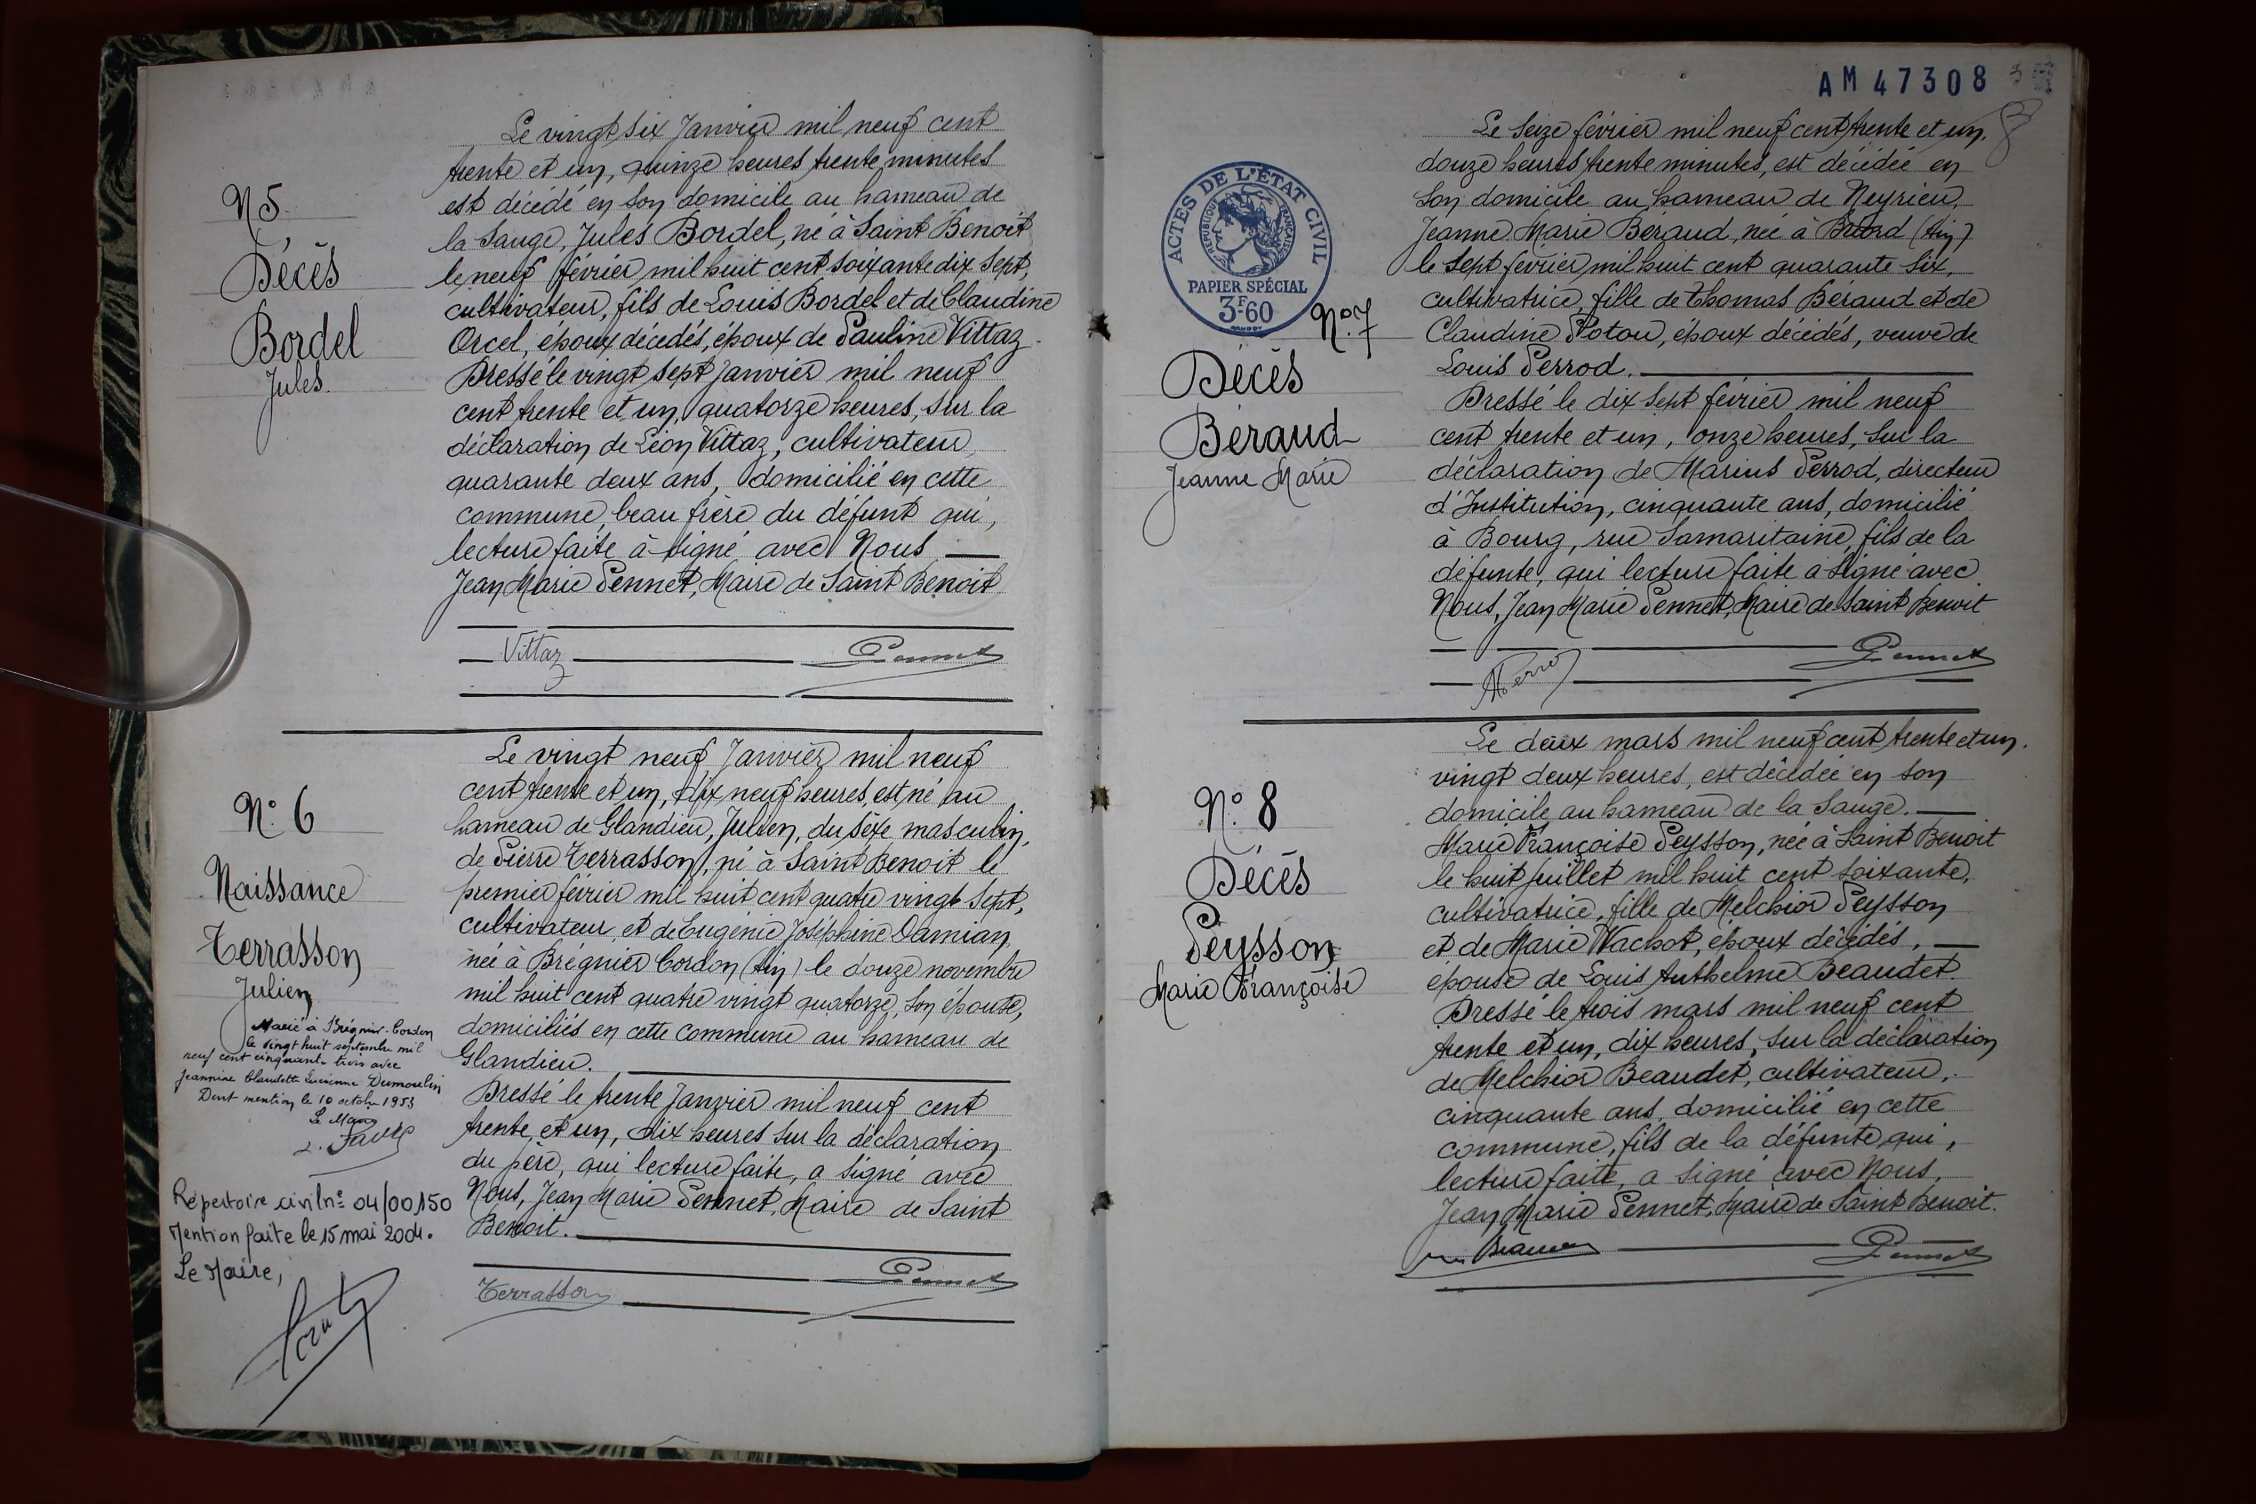 N 5
Décès
Bordel
Jules
Le vingt six Janvier mil neuf cent
trente et un, quinze heures trente minutes
est décédé en son domicile au hameau de
la Sauge, Jules Bordel, né à Saint Benoit
le neuf février mil huit cent soixante dix sept,
cultivateur, fils de Louis Bordel et de Claudine
Orcel, époux décédés, époux de Pauline Vittaz.
Dressé le vingt sept janvier mil neuf
cent trente et un, quatorze heures, sur la
déclaration de Léon Vittaz, cultivateur,
quarante deux ans, domicilié en cette
commune, beau frère du défunt qui,
lecture faite à signé avec Nous
Jean Marie Pennet, Maire de Saint Benoit
Vittaz
Pennet
N° 6
Naissance
Terrasson
Julien
Marié à Brégnier-Cordon
le vingt huit septembre mil
neuf cent cinquante trois avec
Jeannine Claudette Lucienne Dumoulin
Dont mention le 10 octobre 1953
Le Maire
Répertoire civil n° 04/00150
Mention faite le 15 mai 2004.
Le Maire,
Le vingt neuf Janvier mil neuf
cent trente et un, dix neuf heures, est né au
hameau de Glandieu, Julien, du sèxe masculin,
de Pierre Terrasson, né à Saint Benoit le
premier février mil huit cent quatre vingt sept,
cultivateur, et de Eugénie Joséphine Damian,
née à Brégnier Cordon (Ain) le douze novembre
mil huit cent quatre vingt quatorze, son épouse,
domiciliés en cette commune au hameau de
Glandieu.
Dressé le trente Janvier mil neuf cent
trente, et un, dix heures sur la déclaration
du père, qui lecture faite, a signé avec
Nous, Jean Marie Pennet, Maire de Saint
Benoit.
Pennet
Terrasson
AM 47308
8
ACTES DE L'ÉTAT CIVIL
RÉPUBLIQUE FRANÇAISE
PAPIER SPÉCIAL
3F-60
N° 7
Décès
Béraud
Jeanne Marie
Le Seize février mil neuf cent trente et un,
douze heures trente minutes, est décédée en
son domicile au hameau de Neyrieu,
Jeanne Marie Béraud, née à Briord (Ain)
le sept février mil huit cent quarante six,
cultivatrice, fille de Thomas Béraud et de
Claudine Potou, époux décédés, veuve de
Louis Perrod.
Dressé le dix sept février mil neuf
cent trente et un, onze heures, sur la
déclaration de Marius Perrod, directeur
d'Institution, cinquante ans, domicilié
à Bourg, rue Samaritaine, fils de la
défunte, qui lecture faite a signé avec
Nous, Jean Marie Pennet, Maire de Saint Benoit
Pennet
N° 8
Décès
Peysson
Marie Françoise
Le deux mars mil neuf cent trente et un.
vingt deux heures, est décédée en son
domicile au hameau de la Sauge.
Marie Françoise Peysson, née à Saint Benoit
le huit juillet mil huit cent soixante,
cultivatrice, fille de Melchior Peysson
et de Marie Vachot, époux décédés,
épouse de Louis Anthelme Beaudet.
Dressé le trois mars mil neuf cent
trente et un, dix heures, sur la déclaration
de Melchior Beaudet, cultivateur,
cinquante ans, domicilié en cette
commune, fils de la défunte, qui,
lecture faite, a signé avec Nous,
Jean Marie Pennet, Maire de Saint Benoit.
Pennet